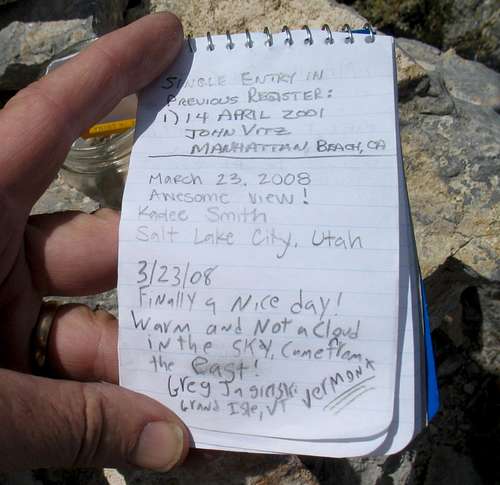 SINGLE ENTRY IN
PREVIOUS REGISTER:
1) 14 APRIL 2001
JOHN VITZ
MANHATTAN BEACH, CA
March 23, 2008
Awesome view!
Kadee Smith
Salt Lake City, Utah
3/23/08
Finally a Nice day!
Warm and Not a Cloud
in the SKY, Came from
the east!
Greg
Grand Isle, VT VERMONT